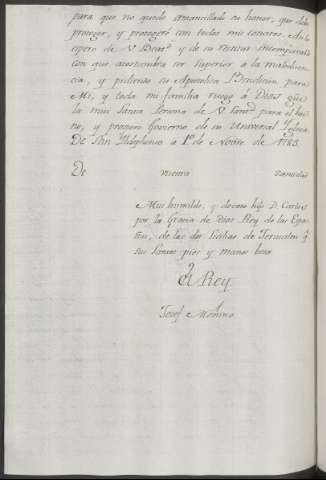 para que no quede amancillado su honor, que debo
proteger, y protegeré con todos mis conatos. Asi lo
espero de V. Beatᵈ y de su rectitud incomparable
con que acostumbra ser superior á la maledicen-
cia, y pidiendo su Apostolica Bendicion para
Mi, y toda mi familia ruego á Dios gᵈᵉ
la mui Santa Persona de V. Santᵈ para el bue-
no, y prospero Govierno de su Universal Iglesia
De Sn Ildephonso á 1º de 1783.
De vuestra Santidad
Mui humilde, y devoto hijo D. Carlos
por la Gracia de Dios Rey de las Espa-
ñas, de las dos Sicilias de Jerusalen &
sus Santos pies y manos besa
El Rey
Josef Moñino